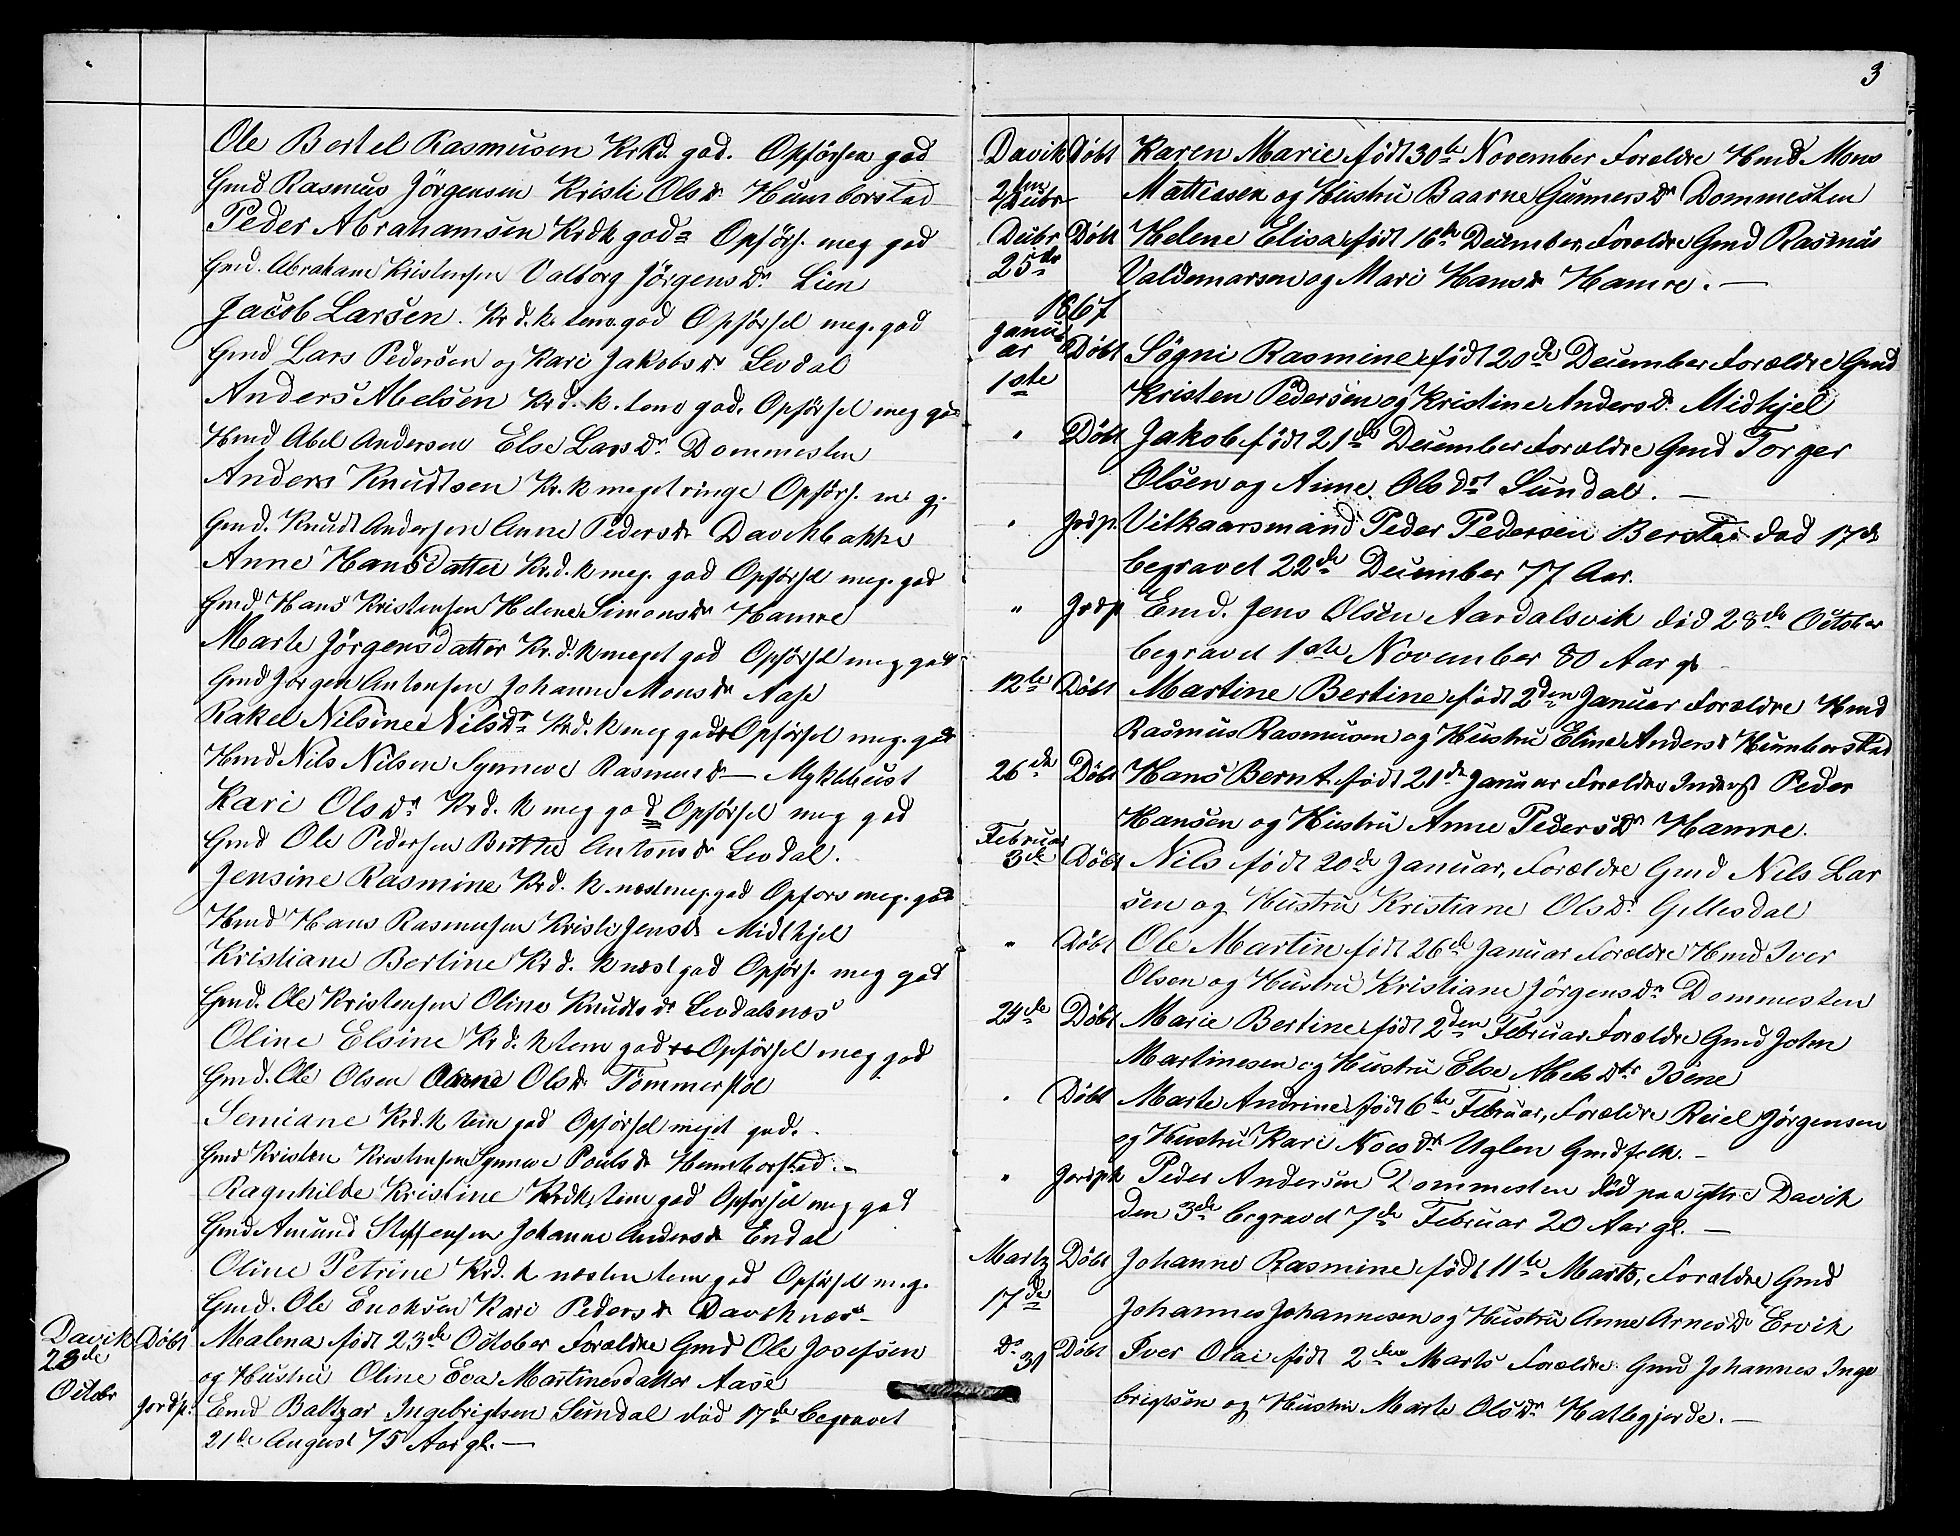 Ole Bertel Rasmusen Krkd. god. Opförsen god
Gmd Rasmus Jörgensen Kristi Olsdr. Humborstad
Peder Abrahamsen Krdk god Opförs. meg god
Gmd. Abraham Kristensen Valborg Jörgensdr. Lien
Jacob Larsen. Kr.d.k. tem. god Opförsel meg. god
Gmd Lars Pedersen og Kari Jakobsdr Levdal
Anders Abelsen Kr.d.k. tem god. Opförsel meg god
Hmd Abel Andersen Else Larsdr. Dommesten
Anders Knudtsen Kr.k meget ringe Opförs. m. g.
Gmd. Knudt Andersen Anne Pedersdr Davikbakke
Anne Hansdatter Kr.d.k meg. god Opförsel meg. god
Gmd Hans Kristensen Helene Simonsdr Hamre
Marte Jörgensdatter Kr.d.k meget god Opförsel meg god
Gmd Jörgen Antonsen Johanne Monsdr Aase
Rakel Nilsine Nilsdr. Kr.d.k meg god Opförsel meg. god
Hmd Nils Nilsen Synneve Rasmusdr Myklebust
Kari Olsdr. Kr.d.k meg god Opförsel meg god
Gmd Ole Pedersen Britha Antonsdr Levdal.
Jensine Rasmine Kr.d.k. næst meg. god Opförs meg. god
Hmd Hans Rasmusen Kristi Jensdr Midthjel
Kristiane Bertine Kr d. k næst god Opförs. meg god
Gmd. Ole Kristensen Oline Knudtsdr Levdalsnæs
Oline Elsine Kr.d.k tem god Opförsel meg god
Gmd. Ole Olsen Anne Olsdr Tömmerstöl
Semiane Kr.d.k tem god Opförsel meget god.
Gmd Kristen Kristensen Synneve Poulsdr Humborstad.
Ragnhilde Kristine Krdk. tem god Opförsel meg god
Gmd Amund Steffensen Johanne Andersdr Endal
Oline Petrine Kr.d.k næsten tem god Opförsel meg.
Gmd. Ole Enoksen Kari Pedersdr Daviknæs
Davik 28de Octobr Döbt Malena födt 23de October Forældre Gmd Ole Josefsen
og Hustru Oline Eva Martinesdatter Aase
Jordp. Emd Baltzar Ingebrigtsen Sundal död 17de begravet
21de August 75 Aar gl.
3
Davik 2den Decbr Döbt Karen Marie födt 30te November Forældre Hmd Mons
Mathisen og Hustru Baarne Gunnersdr Dommesten
Decbr 25de Döbt Helene Elisa födt 16de December Forældre Gmd Rasmus
Valdemarsen og Mari Hansdr Hamre.
1867
Januar 1ste Döbt Sögni Rasmine födt 20de December Forældre Gmd
Kristen Pedersen og Kristine Andersdr. Midhjel
" Döbt Jakob födt 21de December Forældre Gmd Torger
Olsen og Anne Olsdr Sundal.
" Jordp. Vilkaarsmand Peder Pedersen Berstad död 17de
begravet 22de December 77 Aar.
" Jordp Emd. Jens Olsen Aardalsvik död 28de October
begravet 1ste November 80 Aar gl
12te Döbt Martine Bertine födt 2den Januar Forældre Hmd
Rasmus Rasmusen og Hustru Eline Andersd Humborstad
26de Döbt Hans Bernt födt 21de Januar Forældre Inderst Peder
Hansen og Hustru Anne Pedersdr Hamre.
Februar 3de Döbt Nils födt 20de Januar, Forældre Gmd Nils Lar
sen og Hustru Kristiane Olsdr. Gillesdal
" Döbt Ole Martin födt 26de Januar Forældre Hmd Iver
Olsen og Hustru Kristiane Jörgensdr Dommesten
24de Döbt Marie Bertine födt 2den Februar Forældre Gmd John
Martinesen og Hustru Else Abelsdtr Isene
" Döbt Marte Andrine födt 6te Februar, Forældre Reiel Jörgensen
og Hustru Kari Noesdr Uglen Gmdfolk.
" Jordpk Peder Andersen Dommesten död paa yttre Davik
den 3de begravet 7de Februar 20 Aar gl.
Martz 17de Döbt Johanne Rasmine födt 11te Marts, Forældre Gmd
Johannes Johannesen og Hustru Anne Arnesdr Ervik
Do 31 Döbt Iver Olai födt 2den Marts Forældre Gmd Johannes Inge
brigtsen og Hustru Marte Olsdr Hatlegjerde.